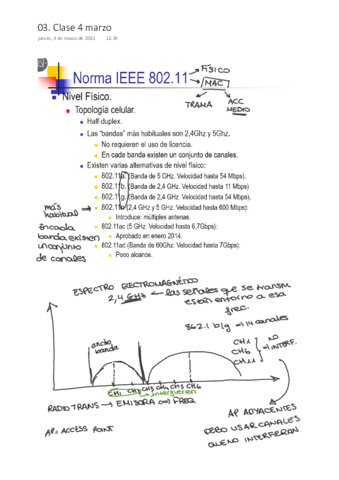 03. Clase 4 marzo
jueves, 4 de marzo de 2021 12:39
Norma IEEE 802.11
FISICO
MAC
TRAMA
ACC
MEDIO
Nivel Físico.
Topología celular.
Half-duplex.
Las "bandas" más habituales son 2,4Ghz y 5Ghz.
No requieren el uso de licencia.
En cada banda existen un conjunto de canales.
Existen varias alternativas de nivel físico:
802.11a. (Banda de 5 GHz. Velocidad hasta 54 Mbps).
802.11b. (Banda de 2,4 GHz. Velocidad hasta 11 Mbps)
802.11g. (Banda de 2,4 GHz. Velocidad hasta 54 Mbps)
más
habitual
802.11n (2,4 GHz y 5 GHz. Velocidad hasta 600 Mbps):
Introduce: múltiples antenas.
802.11ac (5 GHz. Velocidad hasta 6,7Gbps):
Aprobado en enero 2014.
802.11ad (Banda de 60Ghz. Velocidad hasta 7Gbps):
Poco alcance.
En cada
banda existen
un conjunto
de canales
ESPECTRO ELECTROMAGNÉTICO
2,4 GHz ← las señales que se transm
están entorno a esa
frec.
802.1 b/g → 14 canales
CH1
CH6
CH11
NO
INTERF.
ancho
banda
CH1 CH2 CH3 CH4 CH5 CH6
Interfieren
RADIO TRANS → EMISORA ⇔ FREQ
AP: ACCESS POINT
AP ADYACENTES
DEBO USAR CANALES
QUE NO INTERFIERAN